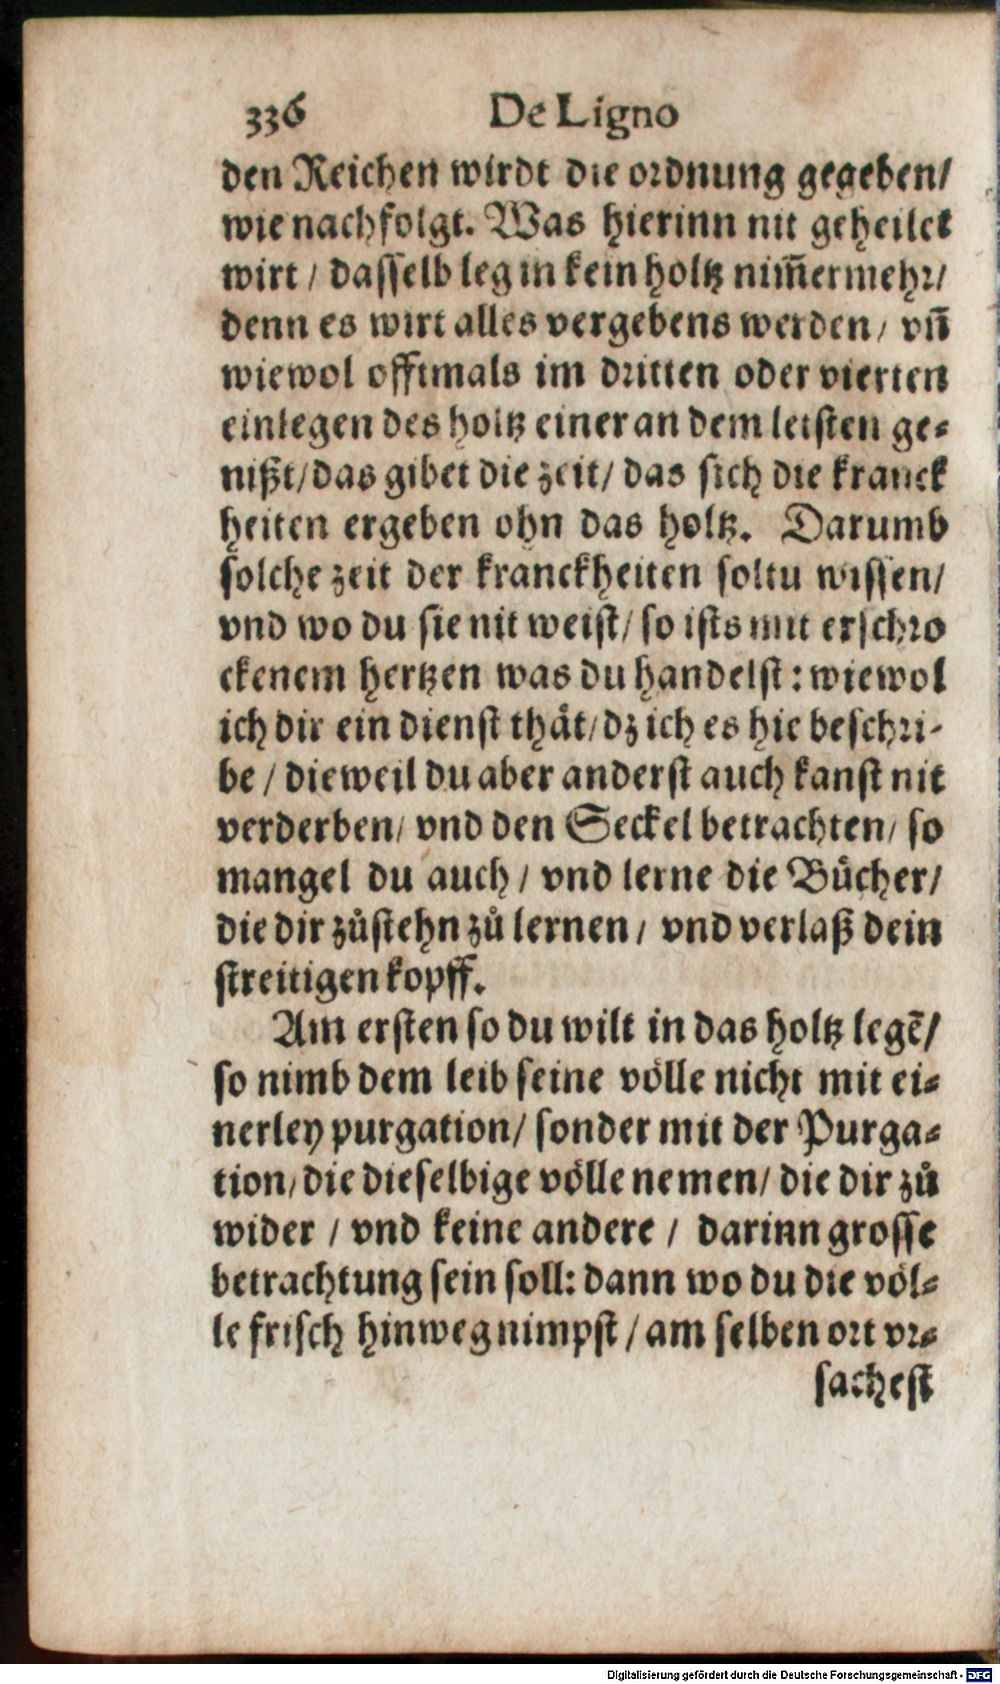 336 De Ligno
den Reichen wirdt die ordnung gegeben/
wie nachfolgt. Was hierinn nit geheilet
wirt / dasselb leg in kein holtz nim̄ermehr/
denn es wirt alles vergebens werden/ vn̄
wiewol offtmals im dritten oder vierten
einlegen des holtz einer an dem letsten ge-
nißt/ das gibet die zeit/ das sich die kranck
heiten ergeben ohn das holtz. Darumb
solche zeit der kranckheiten soltu wissen/
vnd wo du sie nit weist/ so ists mit erschro
ckenem hertzen was du handelst: wiewol
ich dir ein dienst thåt/ dz ich es hie beschri-
be / dieweil du aber anderst auch kanst nit
verderben/ vnd den Seckel betrachten/ so
mangel du auch / vnd lerne die Bůcher/
die dir zůstehn zů lernen / vnd verlaß dein
streitigen kopff.
Am ersten so du wilt in das holtz legē/
so nimb dem leib seine vòlle nicht mit ei-
nerley purgation/ sonder mit der Purga-
tion/ die dieselbige vòlle nemen/ die dir zů
wider / vnd keine andere / darinn grosse
betrachtung sein soll: dann wo du die vòl-
le frisch hinweg nimpst / am selben ort vr-
sachest
Digitalisierung gefördert durch die Deutsche Forschungsgemeinschaft - DFG